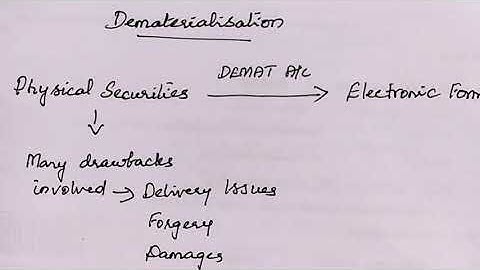 Dematerialisation
DEMAT A/C
Physical Securities → Electronic Form
↓
Many drawbacks
involved → Delivery Issues
Forgery
Damages